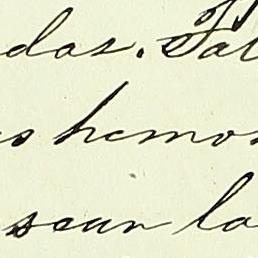 das. Tal
s hemos
sean la